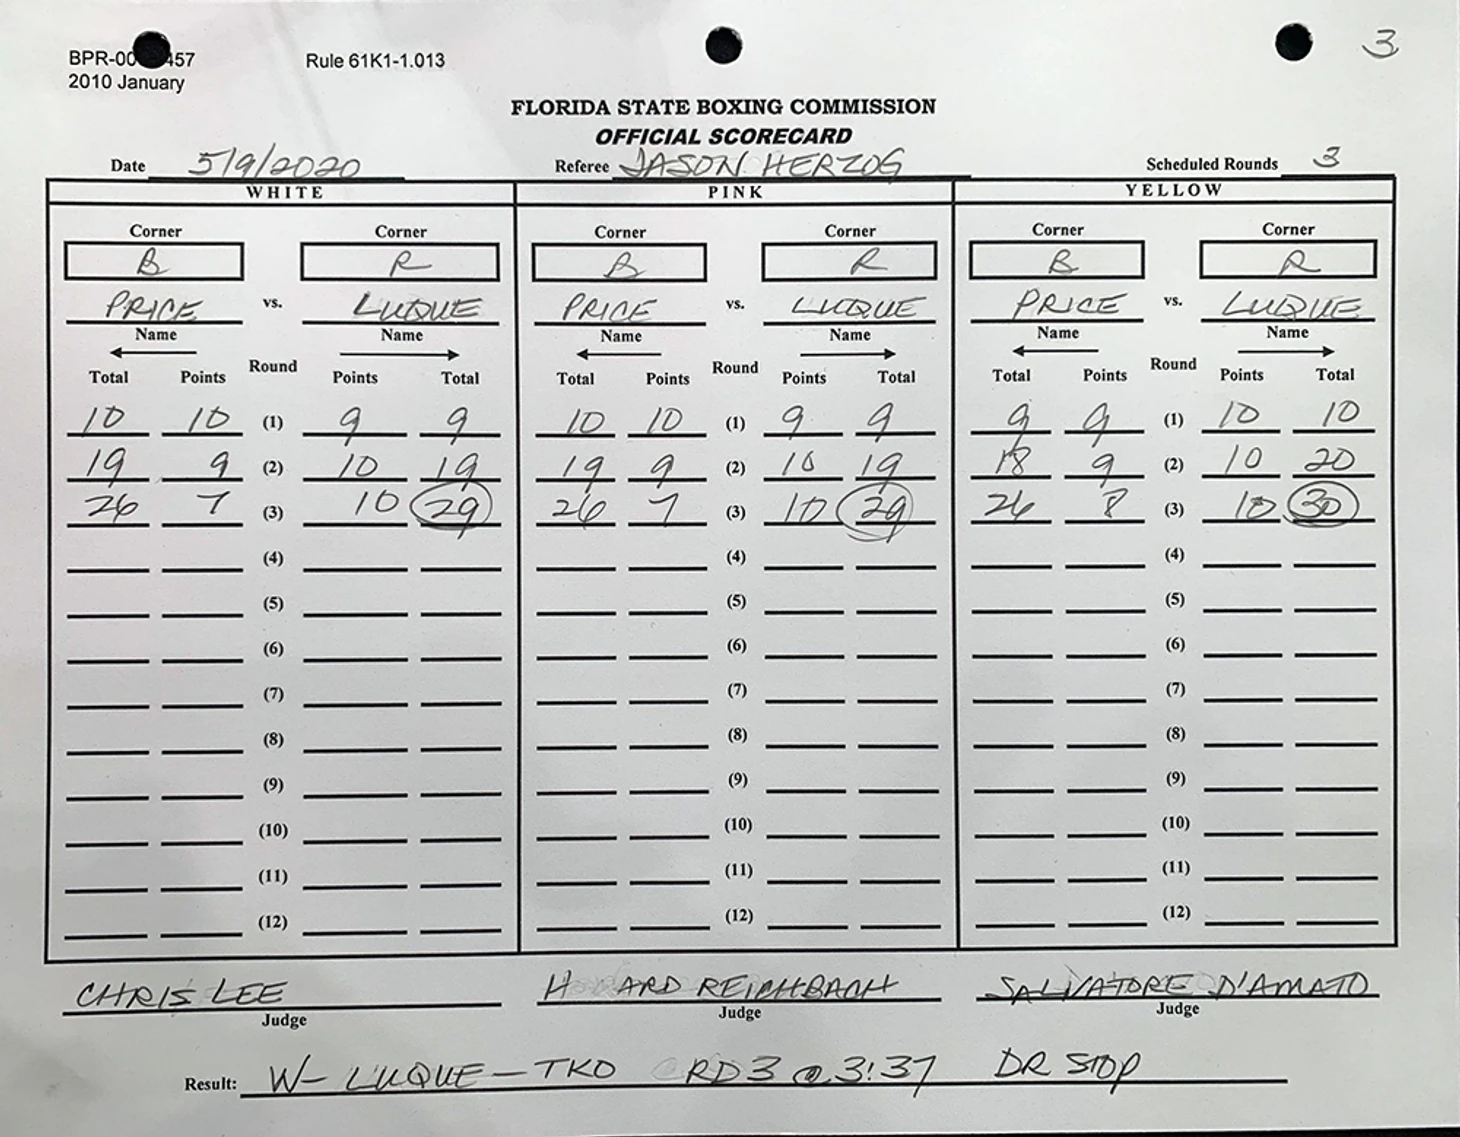 BPR-00 457 Rule 61K1-1.013 3
2010 January
FLORIDA STATE BOXING COMMISSION
OFFICIAL SCORECARD
Date 5/9/2020 Referee JASON HERZOG Scheduled Rounds 3
WHITE PINK YELLOW
Corner Corner Corner Corner Corner Corner
B R B R B R
PRICE vs. LUQUE PRICE vs. LUQUE PRICE vs. LUQUE
Name Name Name Name Name Name
Total Points Round Points Total Total Points Round Points Total Total Points Round Points Total
10 10 (1) 9 9 10 10 (1) 9 9 9 9 (1) 10 10
19 9 (2) 10 19 19 9 (2) 10 19 18 9 (2) 10 20
26 7 (3) 10 29 26 7 (3) 10 29 26 8 (3) 10 30
(4) (4) (4)
(5) (5) (5)
(6) (6) (6)
(7) (7) (7)
(8) (8) (8)
(9) (9) (9)
(10) (10) (10)
(11) (11) (11)
(12) (12) (12)
CHRIS LEE H ARD REICHBACH SALVATORE D'AMATO
Judge Judge Judge
Result: W- LUQUE - TKO RD 3 @ 3:37 DR STOP